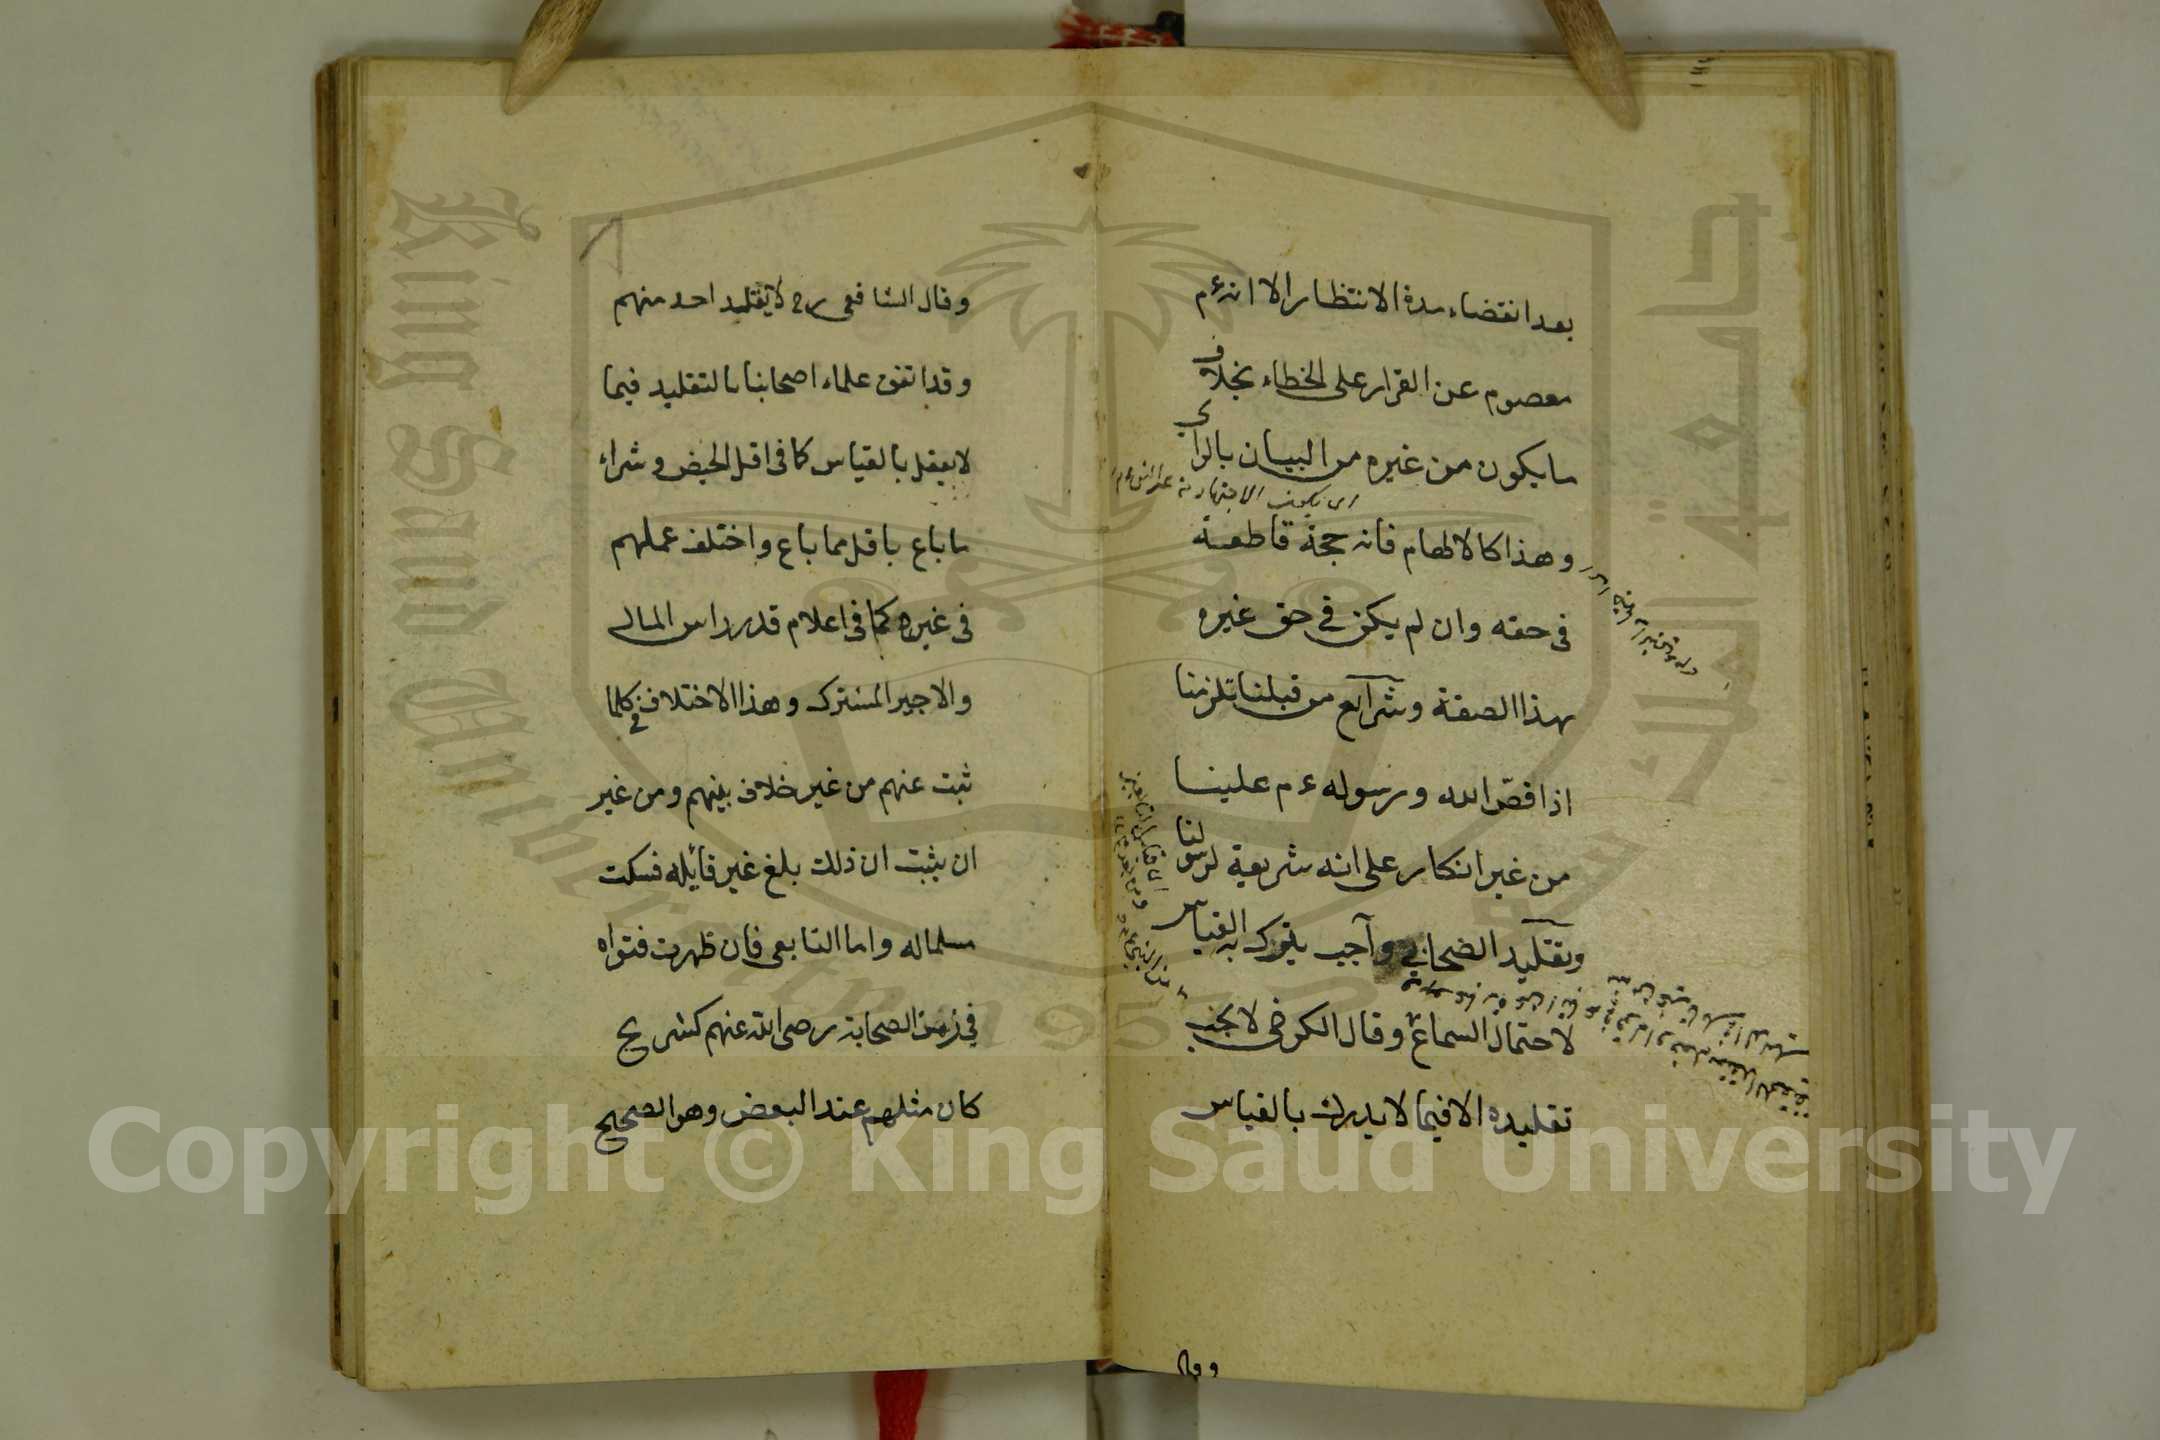 بعد انقضاء مدة الانتظار الا انه ءم
معصوم عن القرار على الخطاء بخلاف
ما يكون من غيره من البيان بالراي
وهذا كالالهام فانه حجة قاطعة
في حقه وان لم يكن في حق غيره
بهذا الصفة وشرآئع من قبلنا تلزمنا
اذا قصّ الله ورسوله ءم علينا
من غير انكار على انه شريعة لرسولنا
وتقليد الصحابي وآجب يترك به القياس
لاحتمال السماع وقال الكرخى لا يجب
تقليده الا فيما لا يدرك بالقياس
وقال
وقال الشافعى رح لا يقلد احد منهم
وقد اتفق علماء اصحابنا بالتقليد فيما
لا يعقل بالقياس كما فى اقل الحيض وشراء
ما باع باقل مما باع واختلف عملهم
فى غيره كما فى اعلام قدر راس المال
والاجير المشترك وهذا الاختلاف في كلما
ثبت عنهم من غير خلاف بينهم ومن غير
ان يثبت ان ذلك بلغ غير قائله فسكت
مسلما له واما التابعى فان ظهرت فتواه
في زمن الصحابة رضى الله عنهم كشريح
كان مثلهم عند البعض وهو الصحيح
King Saud University
جامعة الملك سعود
1957
Copyright © King Saud University